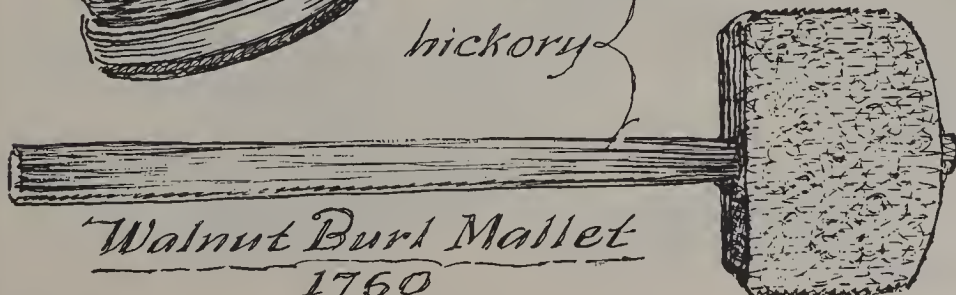 hickory
Walnut Burl Mallet
1760